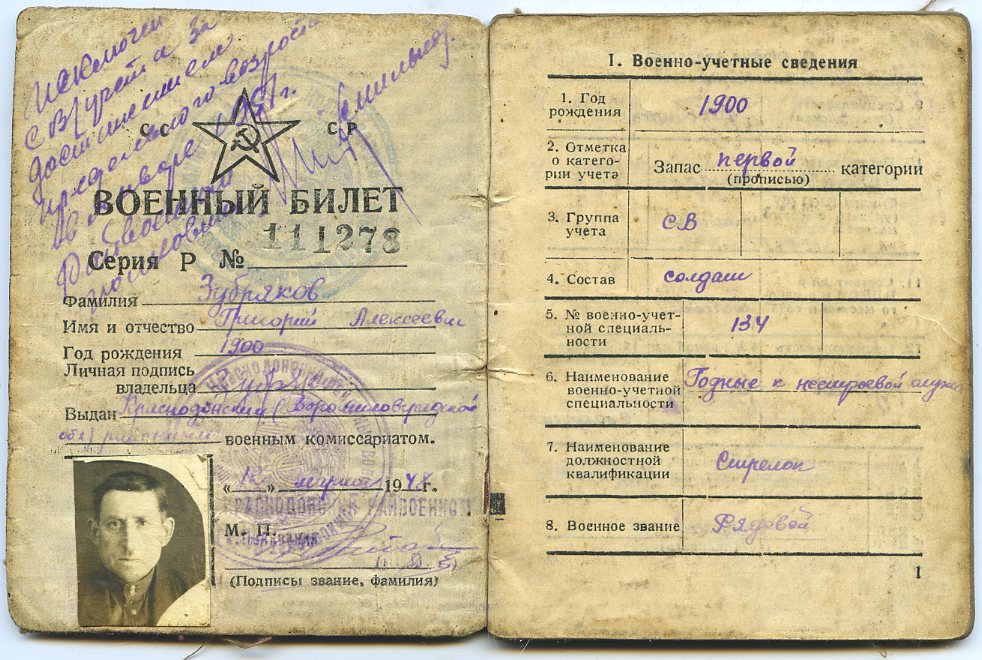 Исключен
с В/учета за
достижением
предельного возраста
в январе 1951 г.
С С
С Р
ВОЕННЫЙ БИЛЕТ
Серия Р № 111278
Фамилия Зубряков
Имя и отчество Григорий Алексеевич
Год рождения 1900
Личная подпись
владельца
Выдан Краснодонским (Ворошиловградской
обл) районным военным комиссариатом.
«12» марта 1948 г.
М. П.
(Подписы звание, фамилия)
I. Военно-учетные сведения
1. Год
рождения
1900
2. Отметка
о катего-
рии учета
Запас первой категории
(прописью)
3. Группа
учета
СВ
4. Состав
солдат
5. № военно-учет-
ной специаль-
ности
134
6. Наименование
военно-учетной
специальности
Годные к нестроевой служб
7. Наименование
должностной
квалификации
Стрелок
8. Военное звание
Рядовой
1